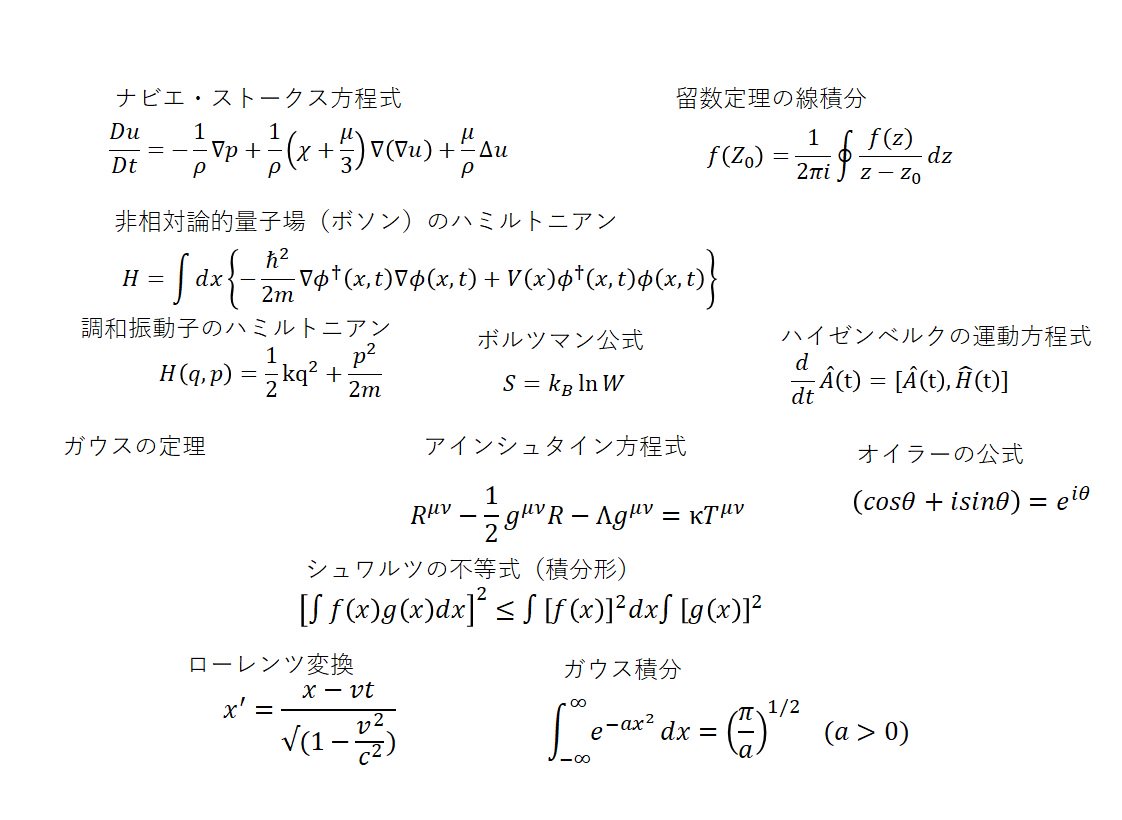 ナビエ・ストークス方程式
Du/Dt = −1/ρ ∇p + 1/ρ (χ + μ/3) ∇(∇u) + μ/ρ Δu
留数定理の線積分
f(Z₀) = 1/2πi ∮ f(z)/z − z₀ dz
非相対論的量子場（ボソン）のハミルトニアン
H = ∫ dx {−ℏ²/2m ∇ϕ†(x,t)∇ϕ(x,t) + V(x)ϕ†(x,t)ϕ(x,t)}
調和振動子のハミルトニアン
H(q,p) = 1/2 kq² + p²/2m
ボルツマン公式
S = k_B ln W
ハイゼンベルクの運動方程式
d/dt Â(t) = [Â(t), Ĥ(t)]
ガウスの定理
アインシュタイン方程式
R^μν − 1/2 g^μν R − Λg^μν = κT^μν
オイラーの公式
(cosθ + isinθ) = e^iθ
シュワルツの不等式（積分形）
[∫ f(x)g(x)dx]² ≤ ∫ [f(x)]²dx∫ [g(x)]²
ローレンツ変換
x′ = x − vt/√(1 − v²/c²)
ガウス積分
∫_−∞^∞ e^−ax² dx = (π/a)^1/2 (a > 0)